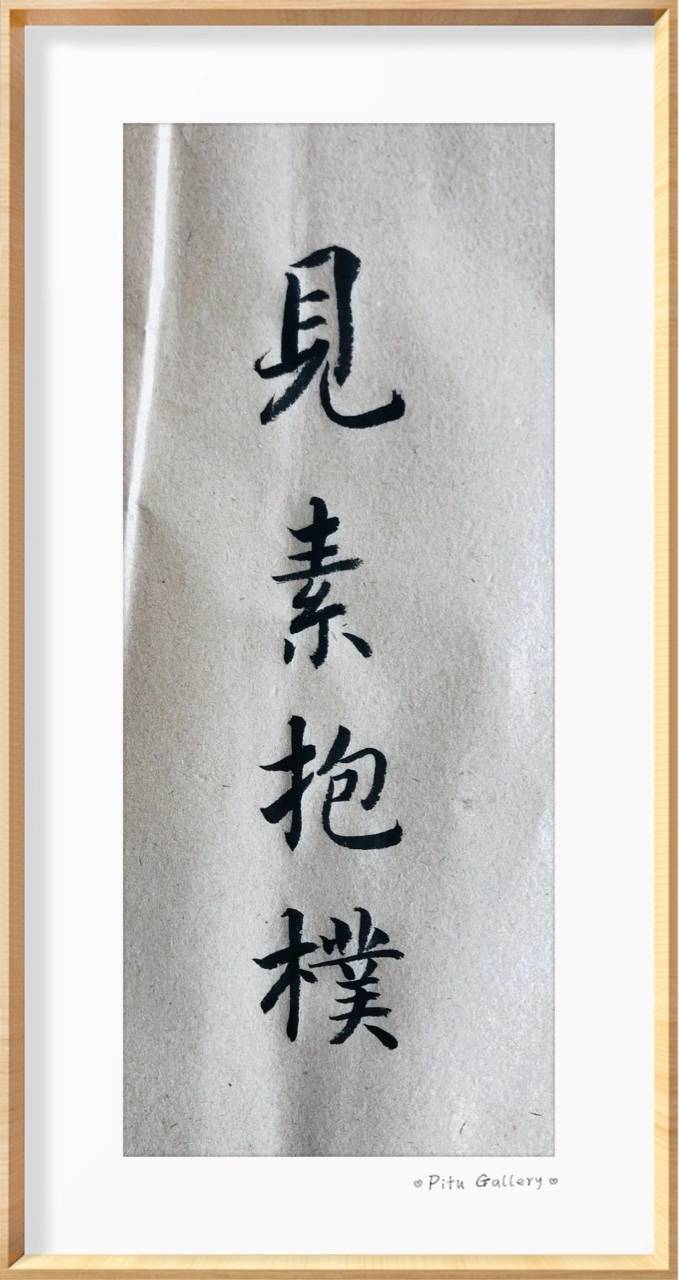 見素抱樸
Pitu Gallery